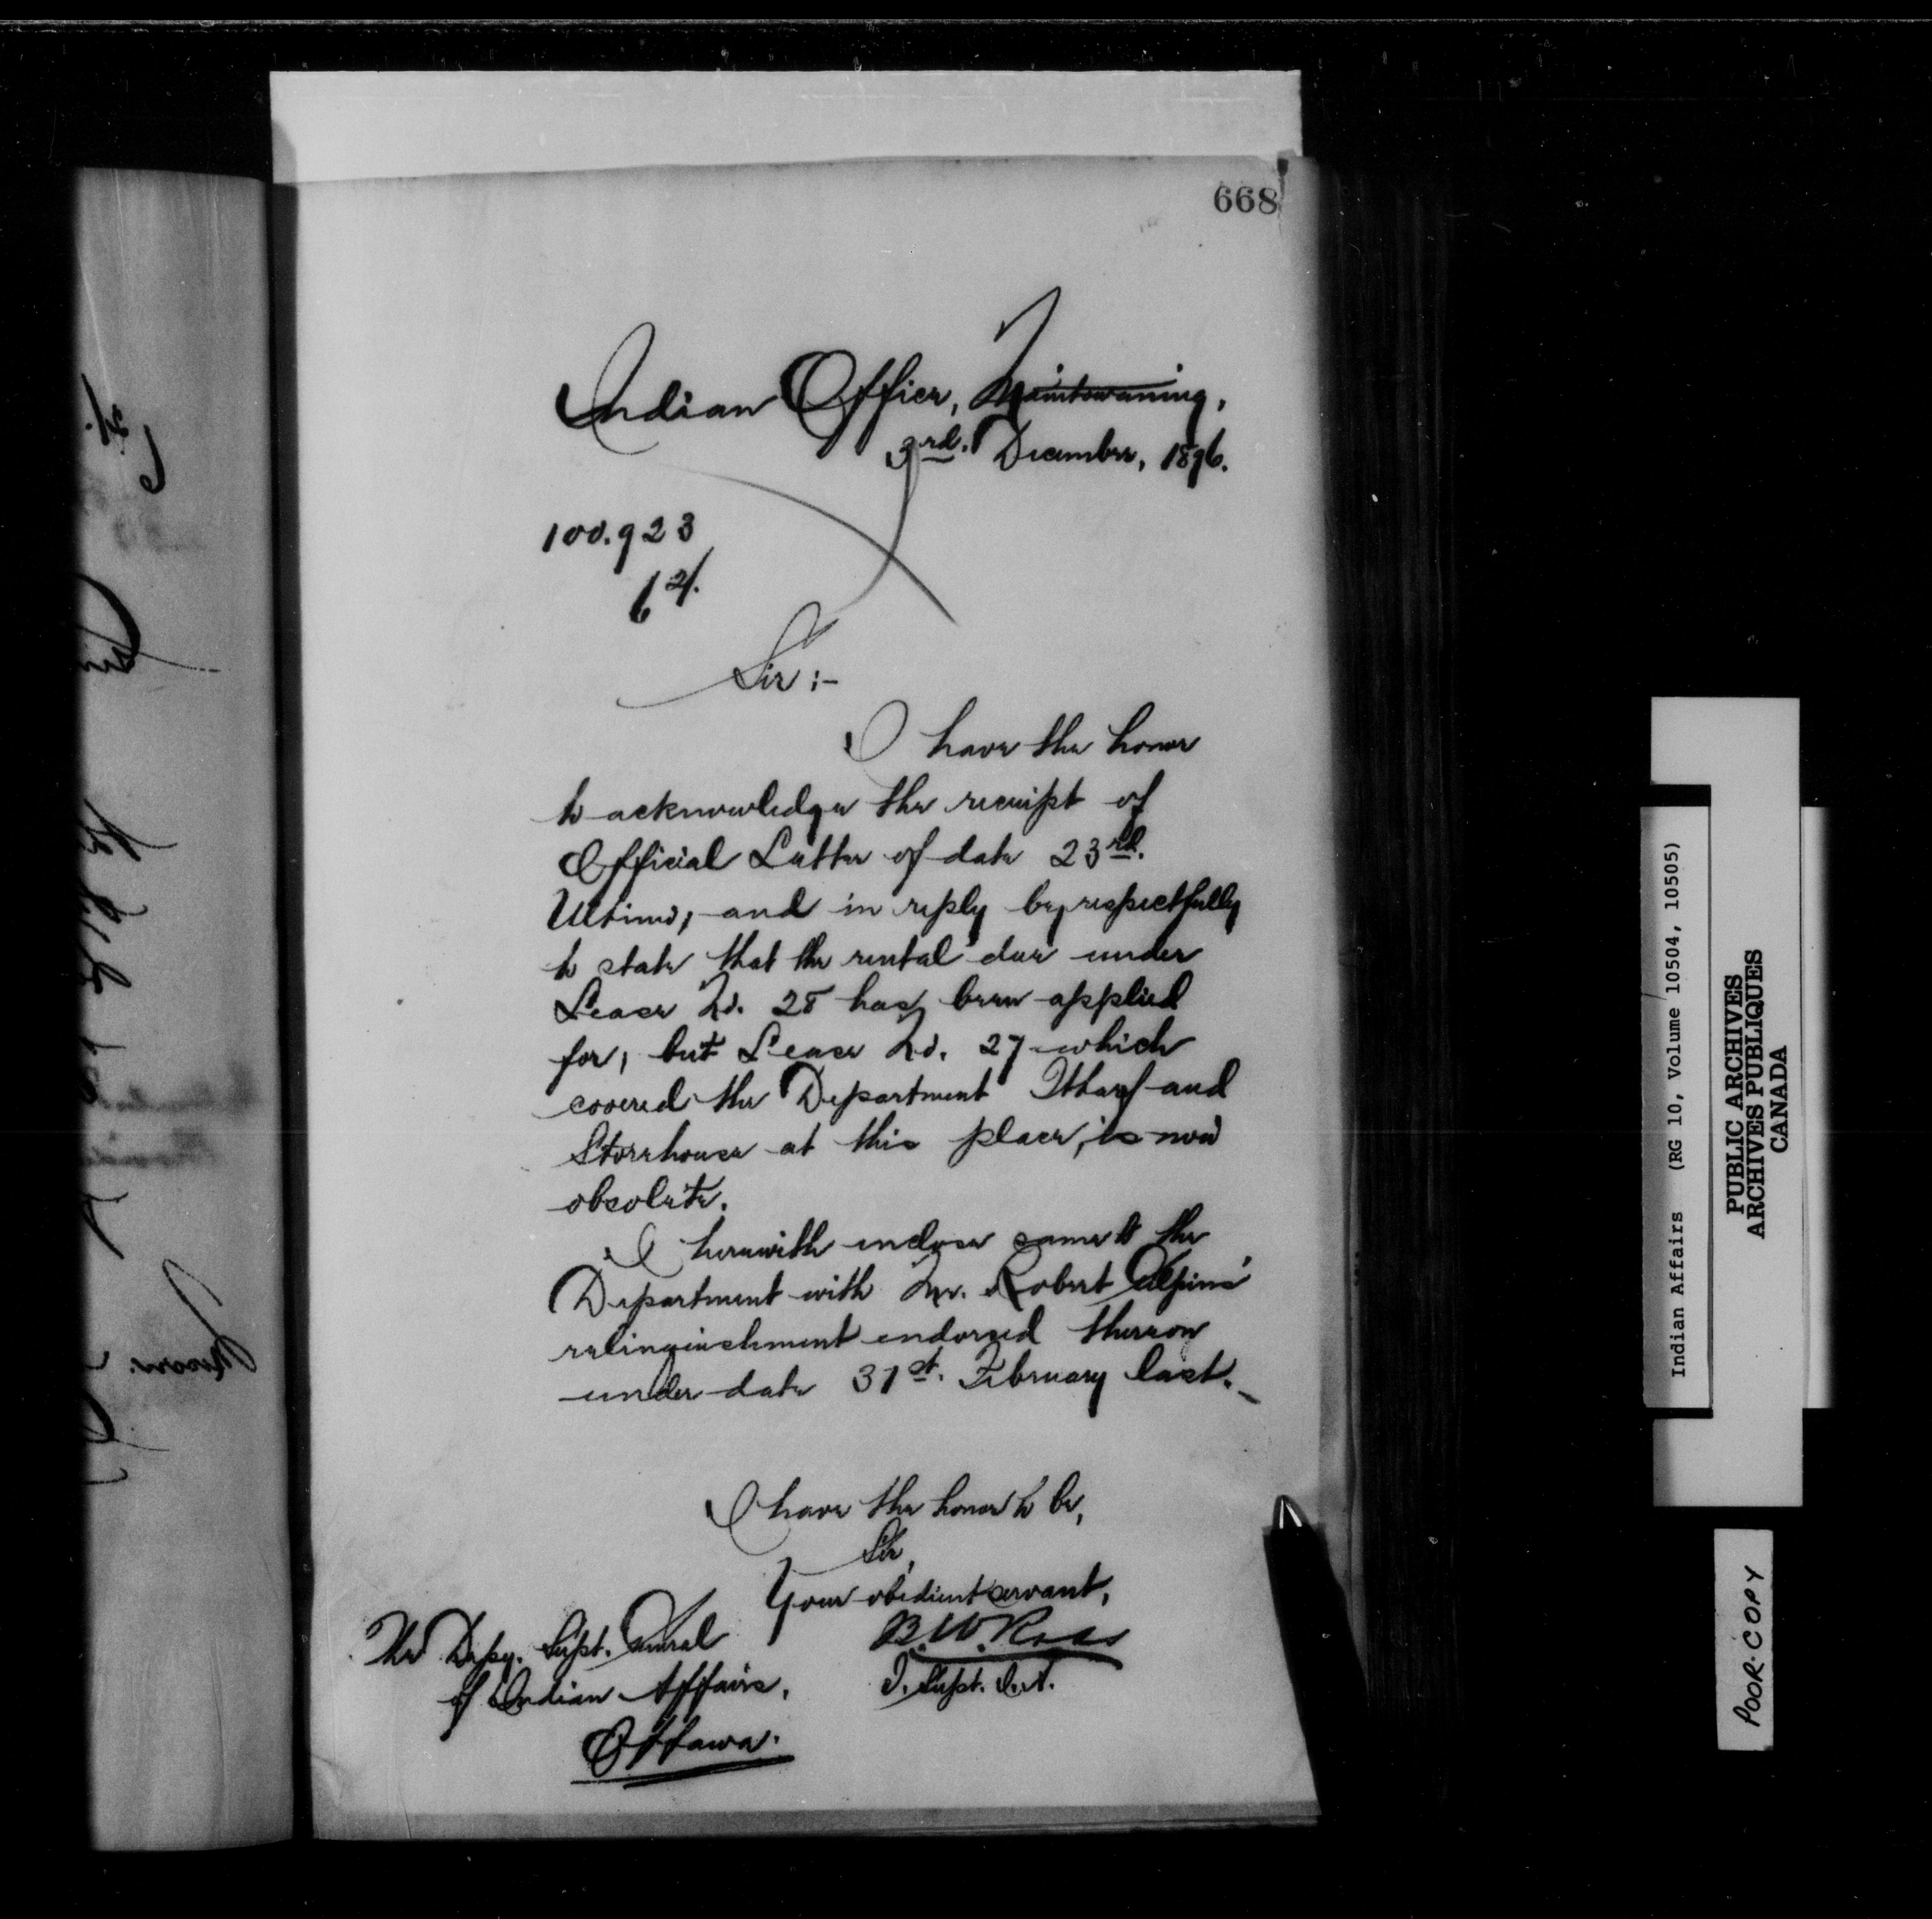 668
Indian Office, Manitowaning,
3rd. December, 1896.
100.923
Sir:-
I have the honor
to acknowledge the receipt of
Official Letter of date 23rd.
Ultimo, and in reply beg respectfully
to state that the rental due under
Lease No. 28 has been applied
for, but Lease No. 27 which
covered the Department Wharf and
Storehouse at this place, is now
obsolete.
I herewith enclose same to the
Department with Mr. Robert
relinquishment endorsed thereon
under date 31st. February last.
I have the honor to be,
Sir,
Your obedient servant,
B.W. Ross
I. Supt. I.A.
The Depy. Supt. General
of Indian Affairs,
Ottawa.
Indian Affairs (RG 10, Volume 10504, 10505)
PUBLIC ARCHIVES
ARCHIVES PUBLIQUES
CANADA
POOR-COPY